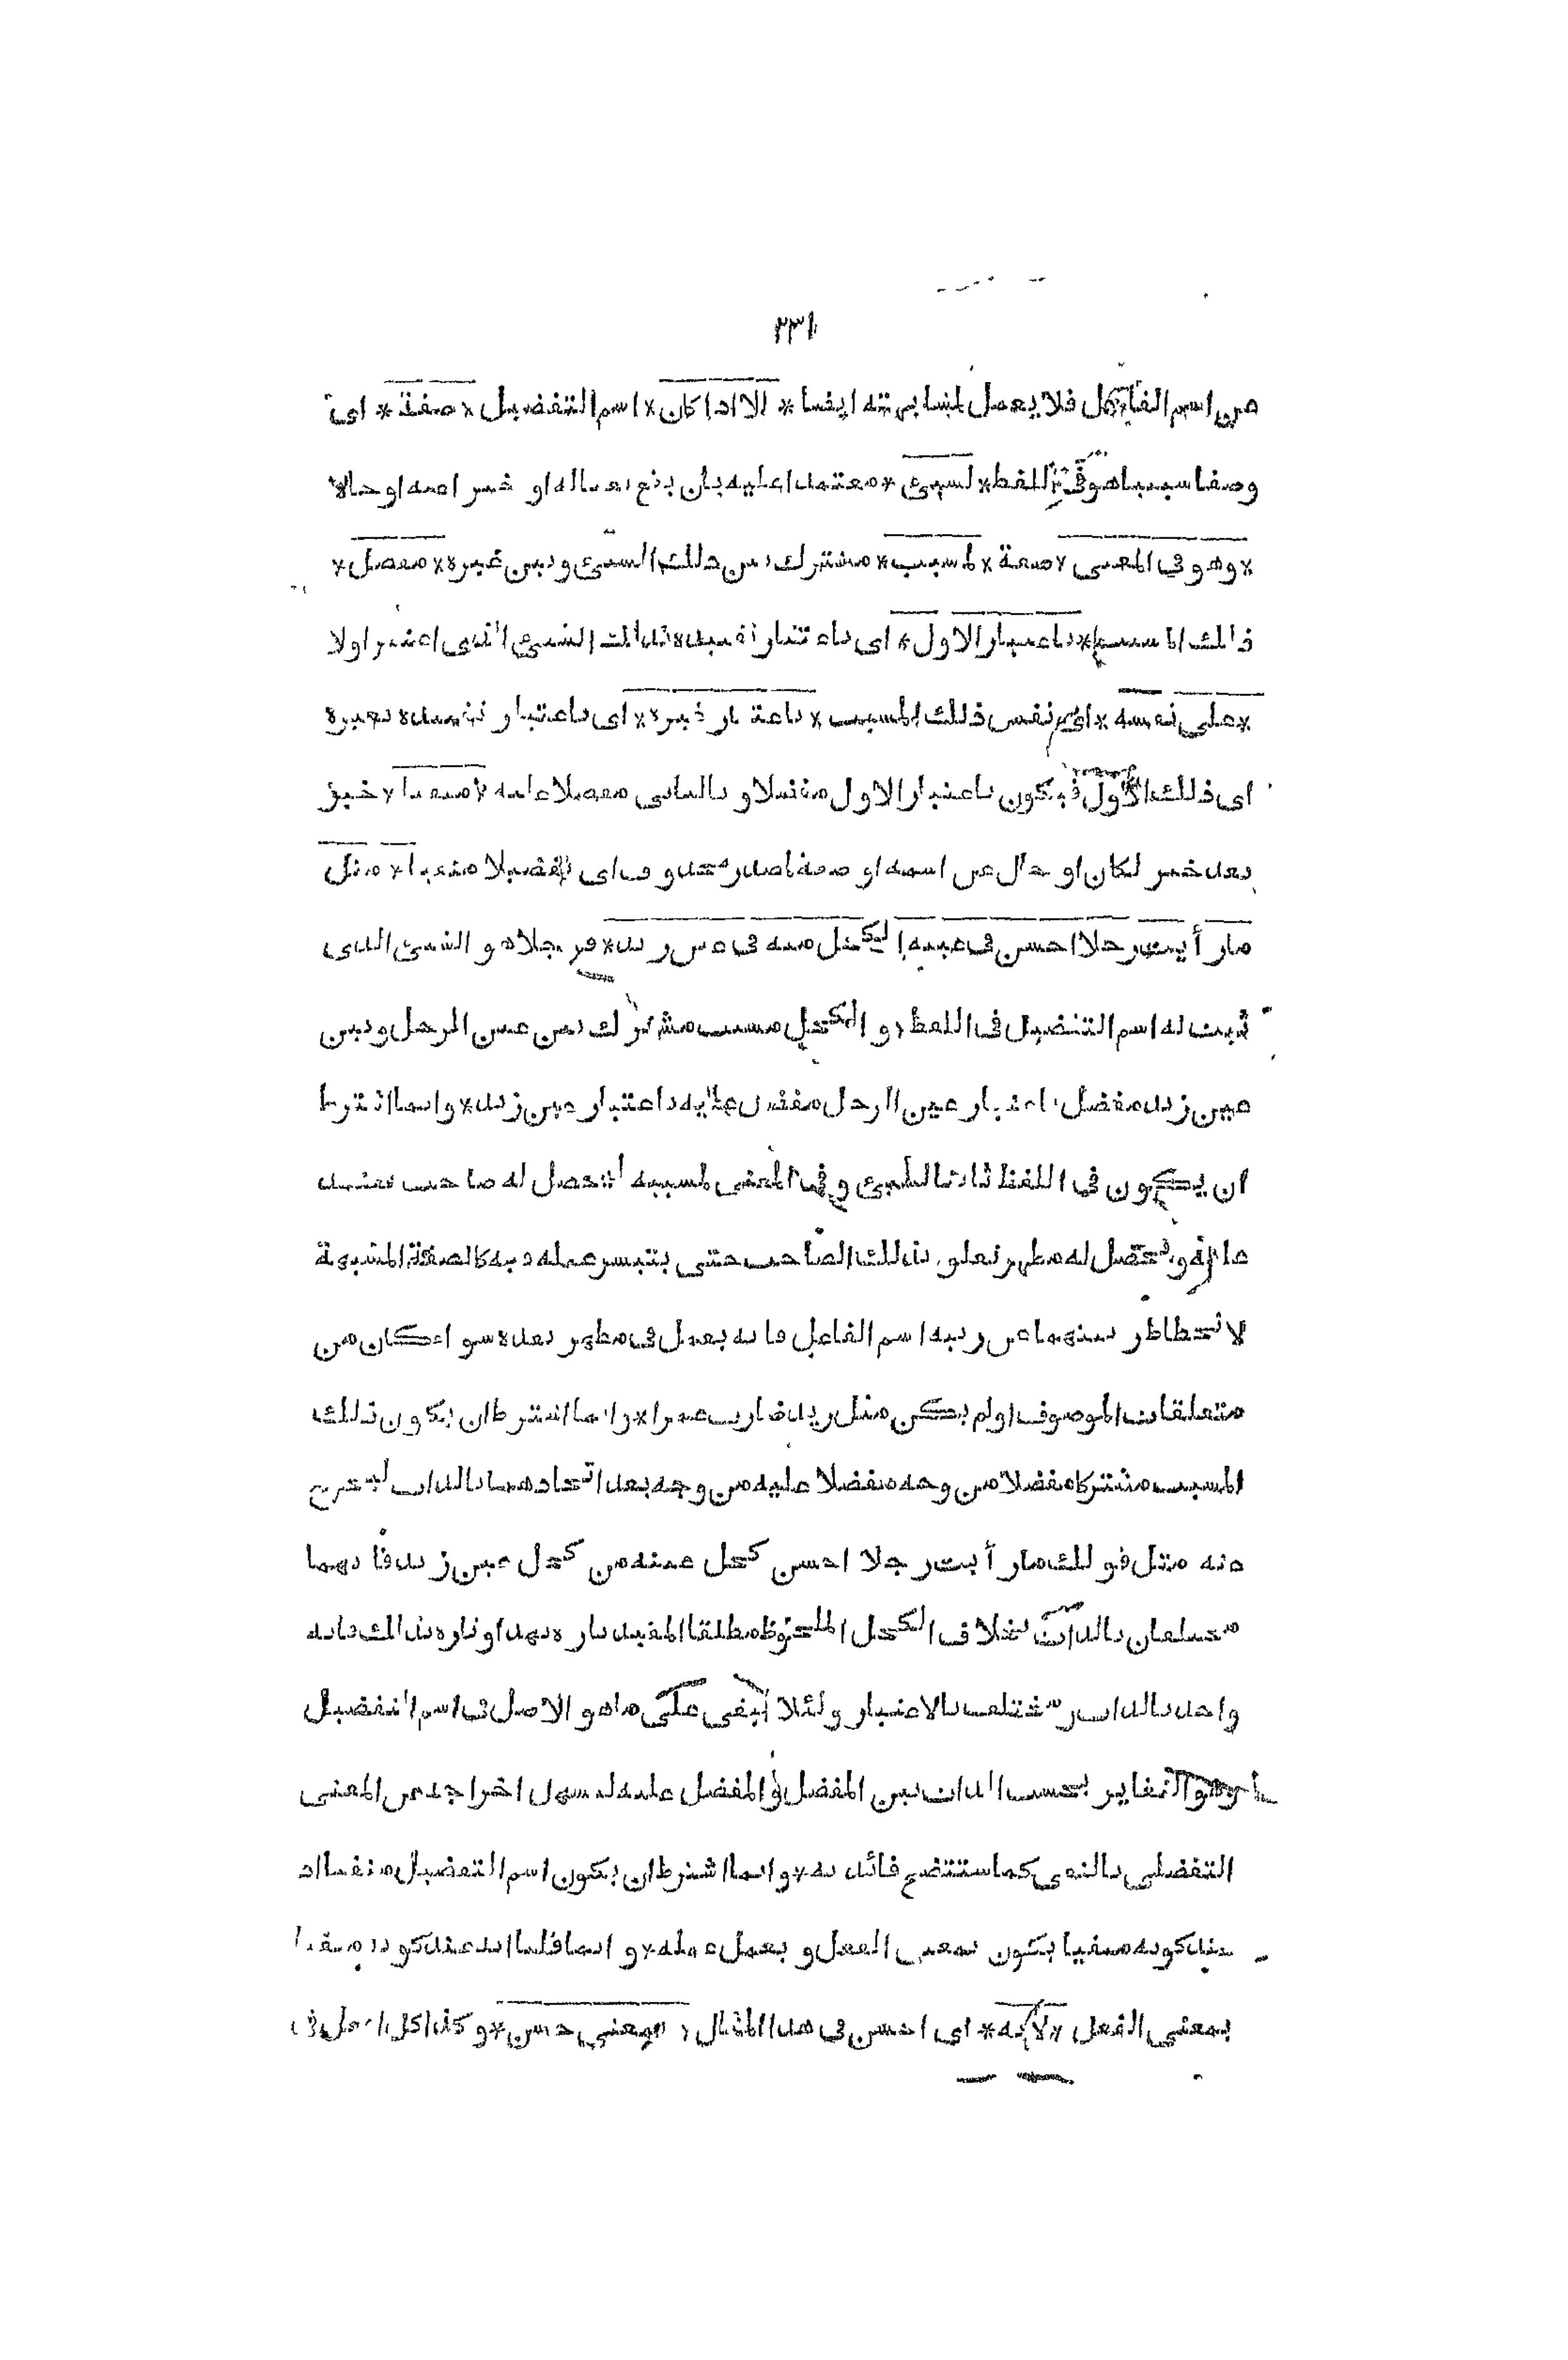 ٢٣١
من اسم الفاعل فلا يعمل لمشابهته ايضا * الا اذا كان * اسم التفضيل * صفة * اى
وصفا سببيا هو فى اللفظ * لشىء * معتمدا عليه بان يقع نعتا له او خبرا عنه او حالا
* وهو فى المعنى * صفة * لمسبب * مشترك بين ذلك الشئ وبين غيره * مفضل *
ذلك المسبب * باعتبار الاول * اى باعتبار تقييده بذلك الشىء الذى اعتبر اولا
* على نفسه * اى نفس ذلك المسبب * باعتبار غيره * اى باعتبار تقييده بغيره
اى ذلك الاول فيكون باعتبار الاول مفضلا وبالثانى مفضلا عليه * منفيا * خبر
بعد خبر لكان او حال عن اسمه او صفة لمصدر محذوف اى تفضيلا منفيا * مثل
ما رأيت رجلا احسن فى عينه الكحل منه فى عين زيد * فرجلا هو الشئ الذى
ثبت له اسم التفضيل فى اللفظ و الكحل مسبب مشترك بين عين الرجل وبين
عين زيد مفضل باعتبار عين الرجل مفضل عليه باعتبار عين زيد * وانما اشترط
ان يكون فى اللفظ ثابتا لشئ وفى المعنى لمسببه ليحصل له صاحب يعتمد
عليه ويحصل له مظهر تعلق بذلك الصاحب حتى يتيسر عمله فيه كالصفة المشبهة
لانحطاط رتبتهما عن رتبة اسم الفاعل فانه يعمل فى مظهر بعده سواء كان من
متعلقات الموصوف اولم يكن مثل زيد ضارب عمرا * وانما اشترط ان يكون ذلك
المسبب مشتركا مفضلا من وجه مفضلا عليه من وجه بعد اتحادهما بالذات ليخرج
عنه مثل قولك ما رأيت رجلا احسن كحل عينه من كحل عين زيد فانهما
مختلفان بالذات بخلاف الكحل الملحوظ مطلقا المقيد تارة بهذا وتارة بذلك فانه
واحد بالذات مختلف بالاعتبار ولئلا يبقى على ما هو الاصل فى اسم التفضيل
وهو التغاير بحسب الذات بين المفضل والمفضل عليه ليسهل اخراجه عن المعنى
التفضيلى بالنفى كما ستتضح فائدته * وانما اشترط ان يكون اسم التفضيل منفيا اذ
عند كونه منفيا يكون بمعنى الفعل ويعمل عمله * وانما قلنا انه عند كونه منفيا
بمعنى الفعل * لانه * اى احسن فى هذا المثال * بمعنى حسن * وكذا كل افعل فى